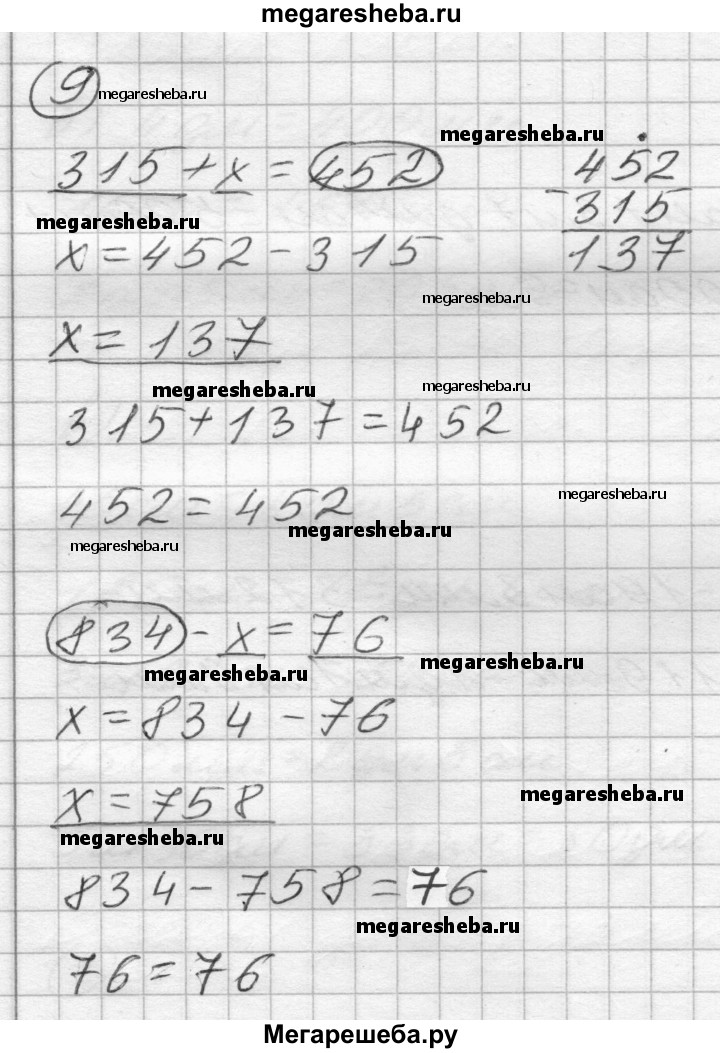 megaresheba.ru
9 megaresheba.ru
megaresheba.ru
315 + x = 452
452
- 315
137
megaresheba.ru
x = 452 - 315
megaresheba.ru
x = 137
megaresheba.ru
megaresheba.ru
315 + 137 = 452
452 = 452
megaresheba.ru
megaresheba.ru
megaresheba.ru
834 - x = 76
megaresheba.ru
megaresheba.ru
x = 834 - 76
x = 758
megaresheba.ru
megaresheba.ru
834 - 758 = 76
megaresheba.ru
76 = 76
Мегарешеба.ру